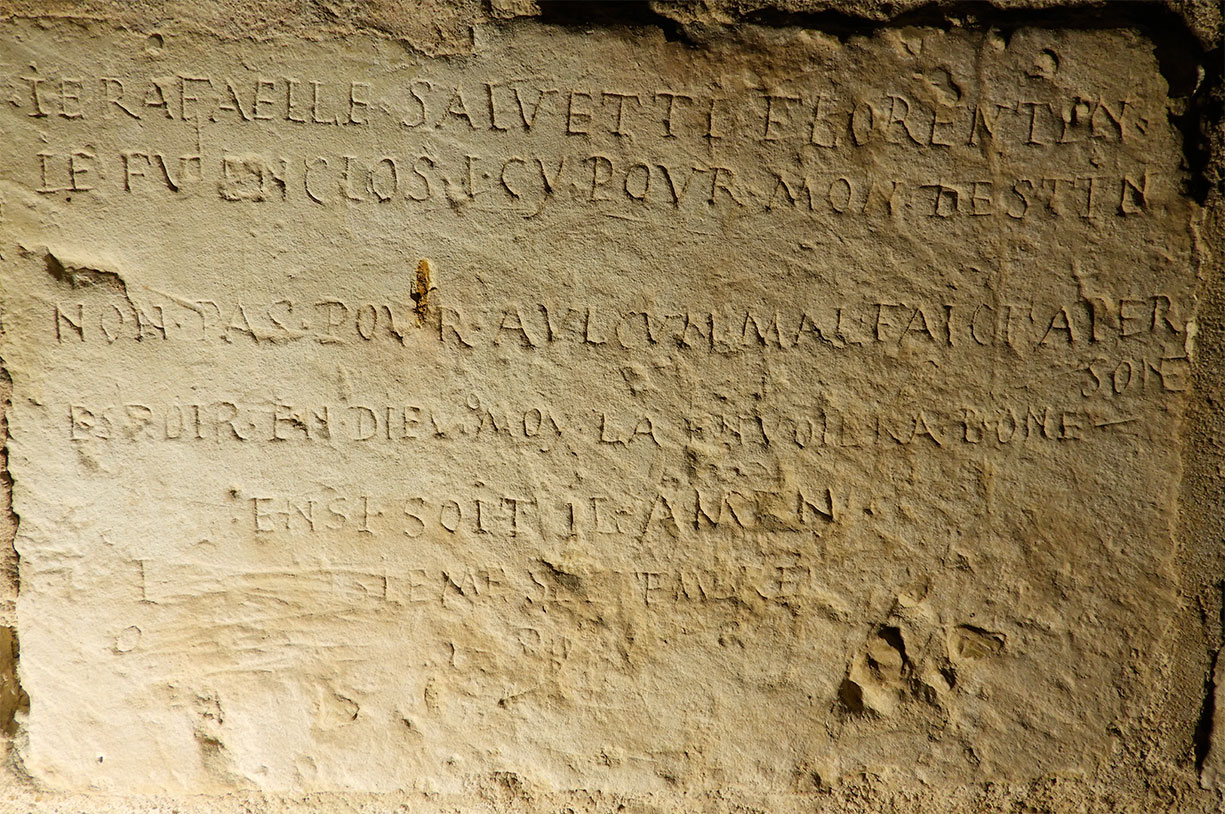 ·IE RAFAELLE · SALVETTI FLORENTIN·
IE FV ENCLOS · I · CY · POVR · MON · DESTIN
NON · PAS · POVR · AVLCVN · MAL · FAICT · A PER
SONE
ESPOIR · EN · DIEV · MOV · LA BONE
· ENSI · SOIT IL · AMEN ·